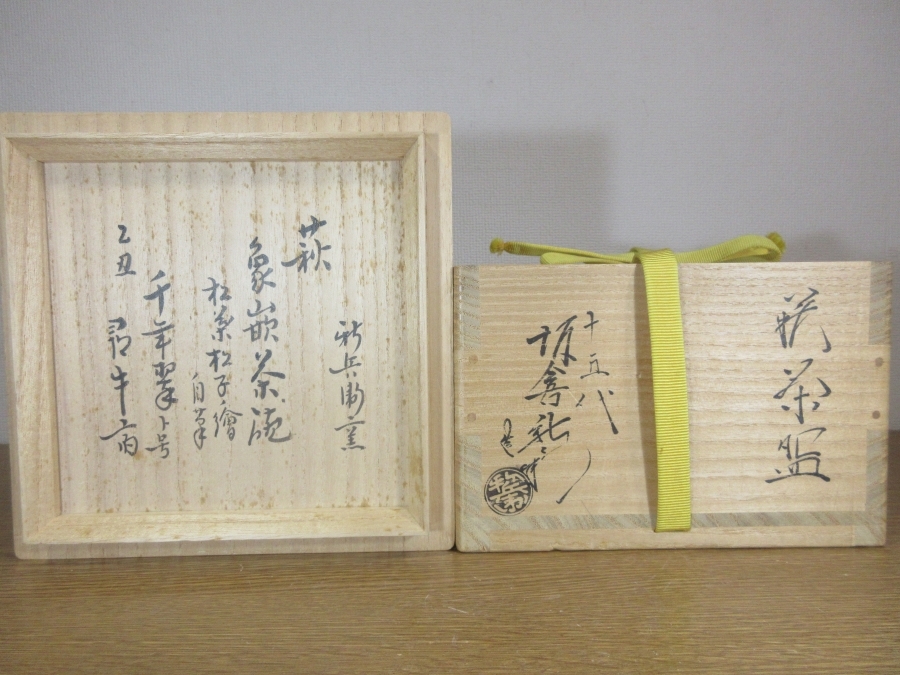 新兵衛窯
萩
象嵌茶碗
松葉松子繪
自筆
千年翠ト号
乙丑 尋牛斎
萩茶盌
十五代
坂倉新兵衛
造